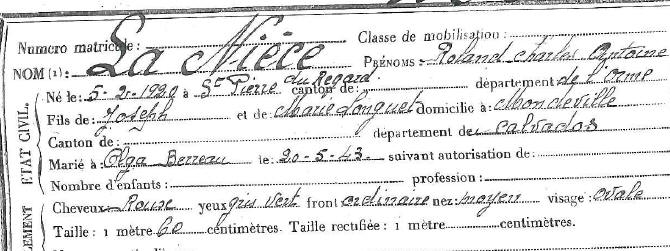 Numéro matricule: Classe de mobilisation:
NOM (1): La Nièce PRÉNOMS: Roland Charles Antoine
Né le: 5-2-1920 à St Pierre du Regard. canton de: département de l'Orne
Fils de: Joseph et de Marie Longuet domicilié à: Mondeville
Canton de: département de Calvados
Marié à: Olga Berreau le: 20-5-43 suivant autorisation de:
Nombre d'enfants: profession:
Cheveux Roux yeux gris vert front ordinaire nez: moyen visage: ovale
Taille: 1 mètre 60 centimètres. Taille rectifiée: 1 mètre centimètres.
ÉTAT CIVIL.